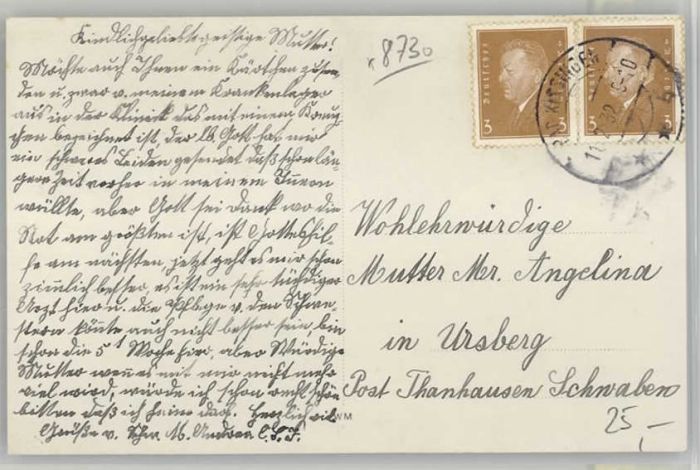 Kindlichgeliebte geistige Mutter!
Möchte auch Ihnen ein Kärtchen zusen-
den u. zwar v. meinem Krankenlager
aus in der Klinik das mit einem Kreuz-
chen bezeichnet ist, der lb. Gott hat mir
ein schweres Leiden gesendet daß schon län-
gere Zeit vorher in meinem Innern
wühlte, aber Gott sei dank wo die
Not am größten ist, ist Gotteshil-
fe am nächsten, jetzt geht es mir schon
ziemlich besser, es ist ein sehr tüchtiger
Arzt hier u. die Pflege v. den Schwe-
stern könnte auch nicht besser sein, bin
schon die 5t Woche hier, aber Würdige
Mutter wenn es mit mir nicht mehr
viel wird, würde ich schon recht schön
bitten daß ich heim darf. Herzlich viel
Grüße v. Schw. M. Andrea
x 8730
Deutsches Reich
3
3
Wohlehrwürdige
Mutter Mer. Angelina
in Ursberg
Post Thanhausen Schwaben
25,-
WM